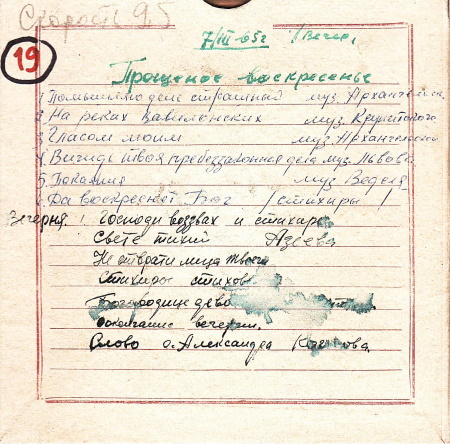 Скорость 9,5
19
7/III-65г. /Вечер/
Прощеное воскресенье
1. Помышляю день страшный муз. Архангельск.
2. На реках Вавилонских муз. Крупитского
3. Гласом моим муз. Архангельского
4. Вижидь твоя пребеззаконная дела муз. Львова
5. Покаяния муз. Веделя
6. Да воскреснет Бог /стихиры
Вечерня. 1. Господи воззвах и стихиры
Свете тихий Азеева
Не отврати лица Твоего
Стихиры стихов.
Богородице дево
окончание вечерни.
Слово о. Александра